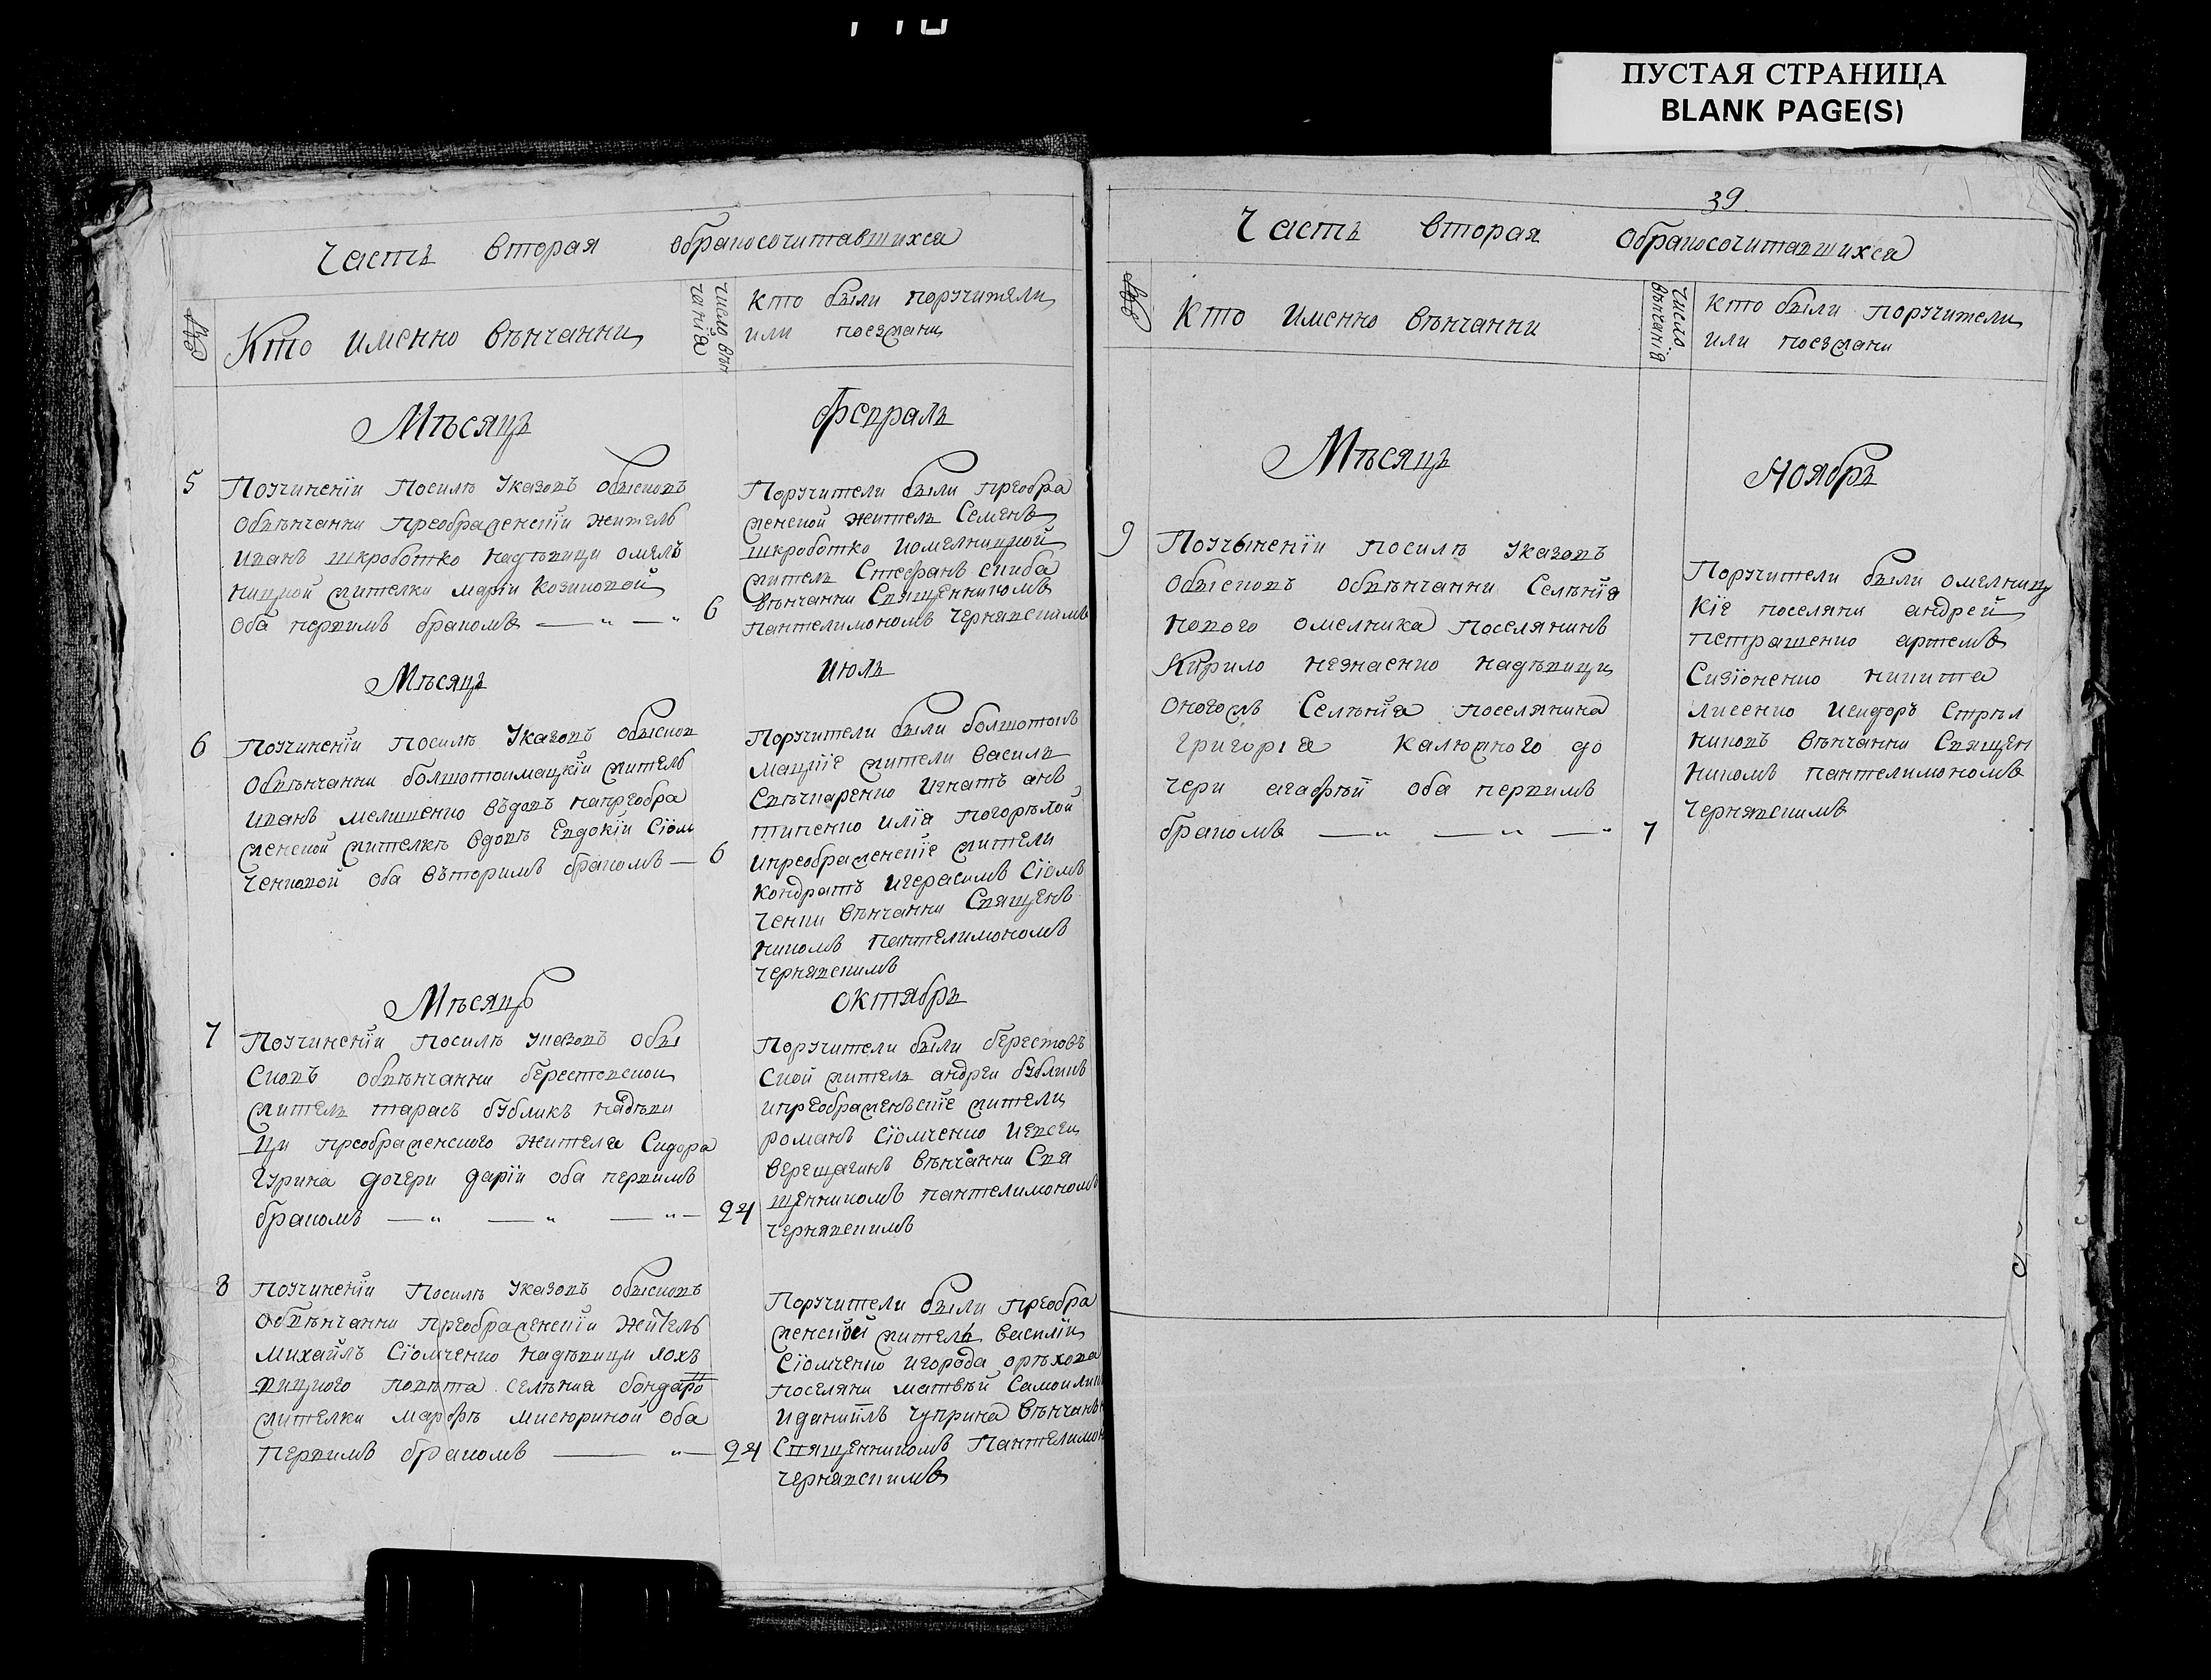 ПУСТАЯ СТРАНИЦА
BLANK PAGE(S)
Часть вторая обракосочитавшихся
№
Кто именно вѣнчанни
число вѣн
чанїя
кто были поручители
или поезжани
Мѣсяцъ
февраль
5
Поучиненїи посилѣ указовъ обысковъ
обвѣнчанни преображенскїи житель
иванъ шкроботко надѣвици омелъ
ницкой жителки марїи Козиновой
оба первимъ бракомъ
6
Поручители были преобра
женской житель Семенъ
шкроботко иомелницкой
житель Стефанъ скиба
вѣнчанни Священникомъ
пантелимономъ чернявскимъ
Мѣсяцъ
июль
6
Поучиненїи посилѣ указовъ обысков
обвѣнчанни болшотокмацкїи житель
иванъ мелишенко въдовъ напреобра
женской жителкѣ вдовѣ Евдокїи Сїом
ченковой оба въторимъ бракомъ
6
Поручители были болшоток
мацкїе жители василь
Свѣчкаренко игнатъ анъ
типенко илїя погорѣлой
ипреображенскїе жители
кондратъ игерасимъ Сїомъ
ченки вѣнчанни Священъ
никомъ пантелимономъ
чернявскимъ
Мѣсяцъ
октябрь
7
Поучиненїи посилѣ указовъ обы
сковъ обвѣнчанни берестовскои
житель тарасъ бубликъ надѣви
ци преображенского жителя Сидора
гурина дочери дарїи оба первимъ
бракомъ
24
Поручители были берестовъ
ской житель андреи бубликъ
ипреображенъскїе жители
романъ сїомченко иевсеи
верещагинъ вѣнчанни Свя
щенникомъ пантелимономъ
чернявскимъ
8
Поучиненїи посилѣ указовъ обысковъ
обвѣнчанни преображенскїи житель
михайлъ Сїомченко надѣвици лохъ
вицкого повѣта селѣния бондаро
жителки марфѣ мисюриной оба
первимъ бракомъ
24
Поручители были преобра
женской житель василїи
Сїомченко игорода орѣхова
поселяни матвѣй Самоилик
иданиїлъ чуприна вѣнчанн
Священникомъ Пантелимон
чернявскимъ
39.
Часть вторая обракосочитавшихся
№
Кто именно вѣнчанни
число
вѣнчанїя
кто были поручители
или поезжани
Мѣсяцъ
Ноябрь
9
Поучыненїи посилѣ указовъ
обысковъ обвѣнчанни Селѣнїя
нового омелника поселянинъ
Кирило незнаенко надѣвици
оногожъ Селѣнїя поселянина
григорїя калюжного до
чери агафїи оба первимъ
бракомъ
7
Поручители были омелниц
кїе поселяни андрей
петрашенко артемъ
Сизїоненко никита
лисенко исидоръ Стрѣл
никовъ вѣнчанни Священ
никомъ пантелимономъ
чернявскимъ